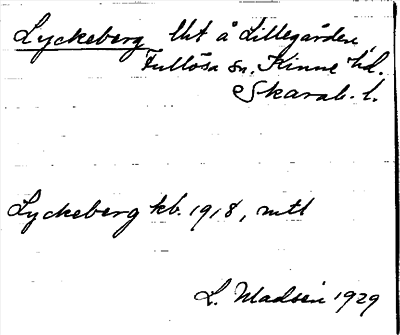 Lyckeberg lht å Lillegården,
Fullösa sn. Kinne hd.
Skarab. l.
Lyckeberg kb. 1918, mtl
L. Madsén 1929